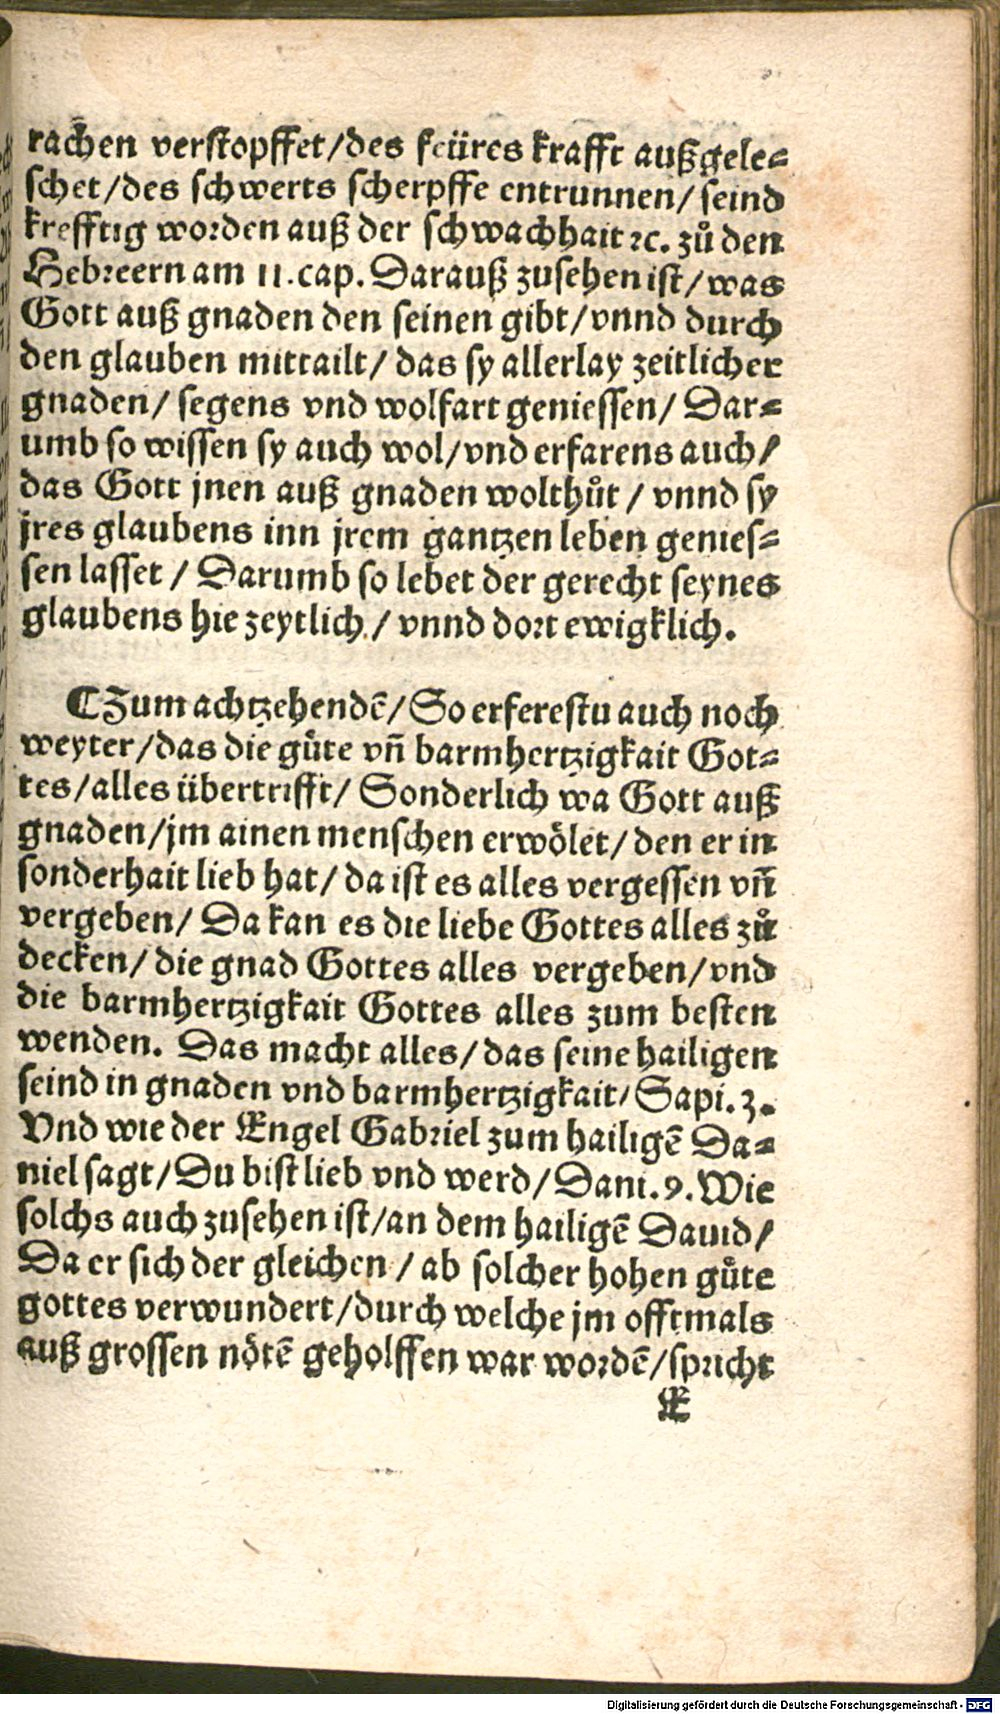 rachen verstopffet/des feüres krafft außgele⸗
schet/des schwerts scherpffe entrunnen/ seind
krefftig worden auß der schwachhait ꝛc. zuͦ den
Hebreern am 11. cap. Darauß zusehen ist/ was
Gott auß gnaden den seinen gibt/ vnnd durch
den glauben mittailt/ das sy allerlay zeitlicher
gnaden/ segens vnd wolfart geniessen/ Dar⸗
umb so wissen sy auch wol/ vnd erfarens auch/
das Gott jnen auß gnaden wolthuͦt / vnnd sy
jres glaubens inn jrem gantzen leben genies⸗
sen lasset / Darumb so lebet der gerecht seynes
glaubens hie zeytlich / vnnd dort ewigklich.
⸿Zum achtzehendē/ So erferestu auch noch
weyter/das die guͤte vñ barmhertzigkait Got⸗
tes/alles übertrifft/ Sonderlich wa Gott auß
gnaden/jm ainen menschen erwoͤlet/ den er in
sonderhait lieb hat/ da ist es alles vergessen vñ
vergeben/ Da kan es die liebe Gottes alles zuͦ
decken/ die gnad Gottes alles vergeben/ vnd
die barmhertzigkait Gottes alles zum besten
wenden. Das macht alles/ das seine hailigen
seind in gnaden vnd barmhertzigkait/ Sapi. 3.
Vnd wie der Engel Gabriel zum hailigē Da⸗
niel sagt/ Du bist lieb vnd werd/ Dani. 9. Wie
solchs auch zusehen ist/an dem hailigē Dauid/
Da er sich der gleichen / ab solcher hohen guͤte
gottes verwundert/durch welche jm offtmals
auß grossen noͤtē geholffen war wordē/spricht
E
Digitalisierung gefördert durch die Deutsche Forschungsgemeinschaft - DFG